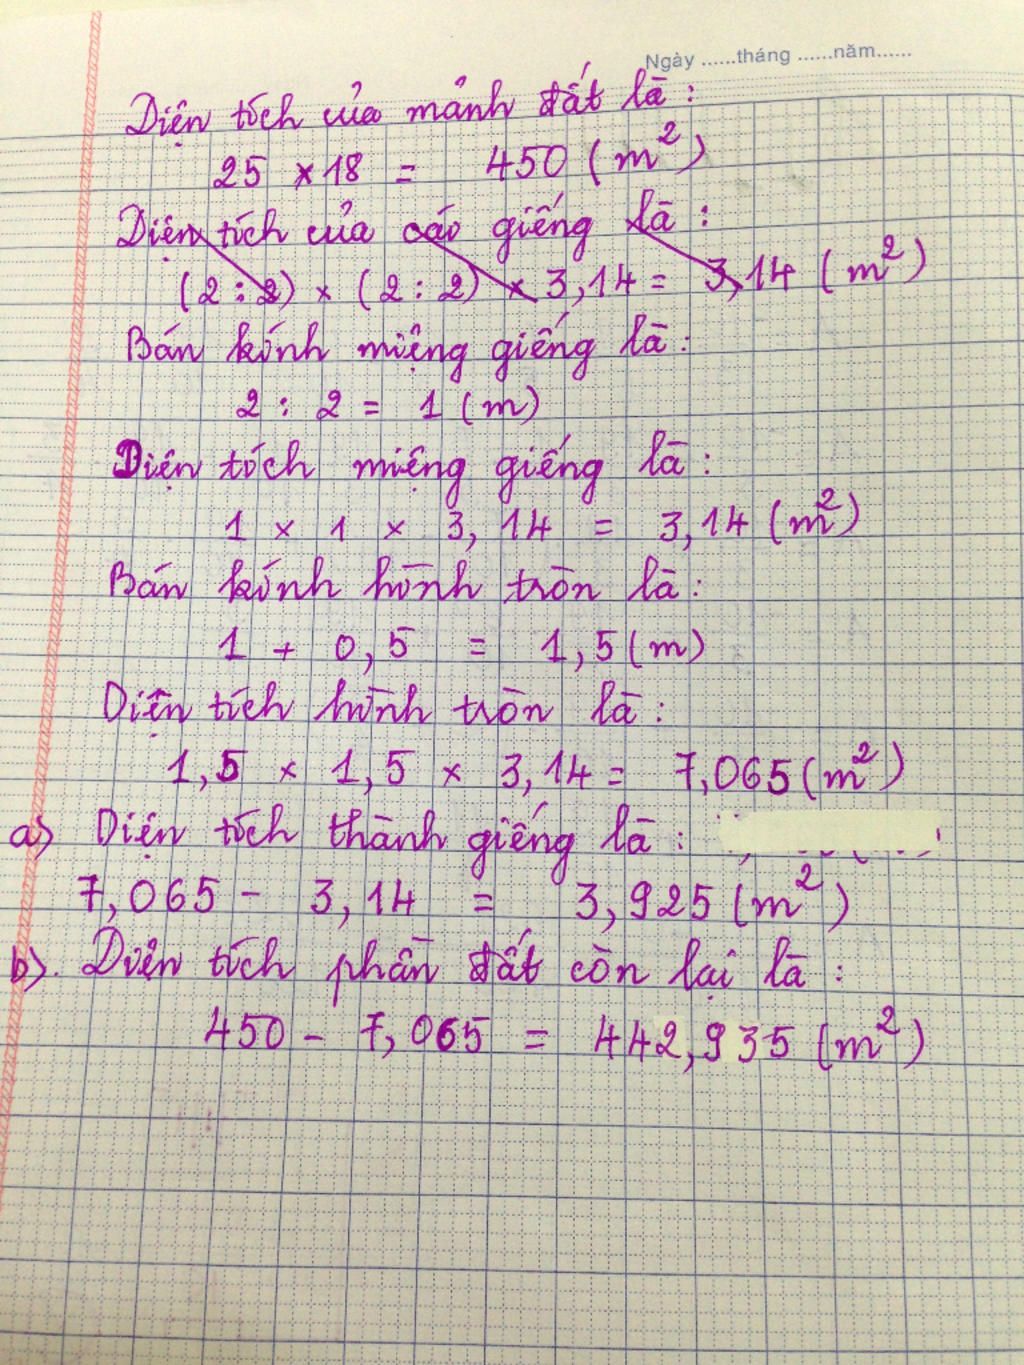 Ngày ......tháng ......năm......
Diện tích của mảnh đất là :
25 × 18 = 450 ( m² )
Diện tích của cái giếng là :
( 2 : 2 ) × ( 2 : 2 ) × 3,14 = 3,14 ( m² )
Bán kính miệng giếng là :
2 : 2 = 1 ( m )
Diện tích miệng giếng là :
1 × 1 × 3,14 = 3,14 ( m² )
Bán kính hình tròn là :
1 + 0,5 = 1,5 ( m )
Diện tích hình tròn là :
1,5 × 1,5 × 3,14 = 7,065 ( m² )
a) Diện tích thành giếng là :
7,065 - 3,14 = 3,925 ( m² )
b). Diện tích phần đất còn lại là :
450 - 7,065 = 442,935 ( m² )